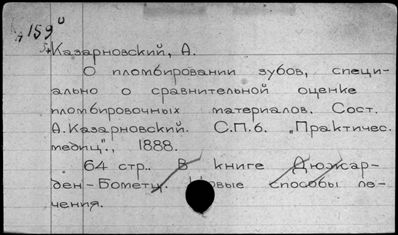 159
Казарновский, А.
О пломбировании зубов, специ-
ально о сравнительной оценке
пломбировочных материалов. Сост.
А. Казарновский. С.П.б. „Практичес.
медиц"., 1888.
64 стр.. В книге Дюжар-
ден-Бометц. Новые способы ле-
чения.